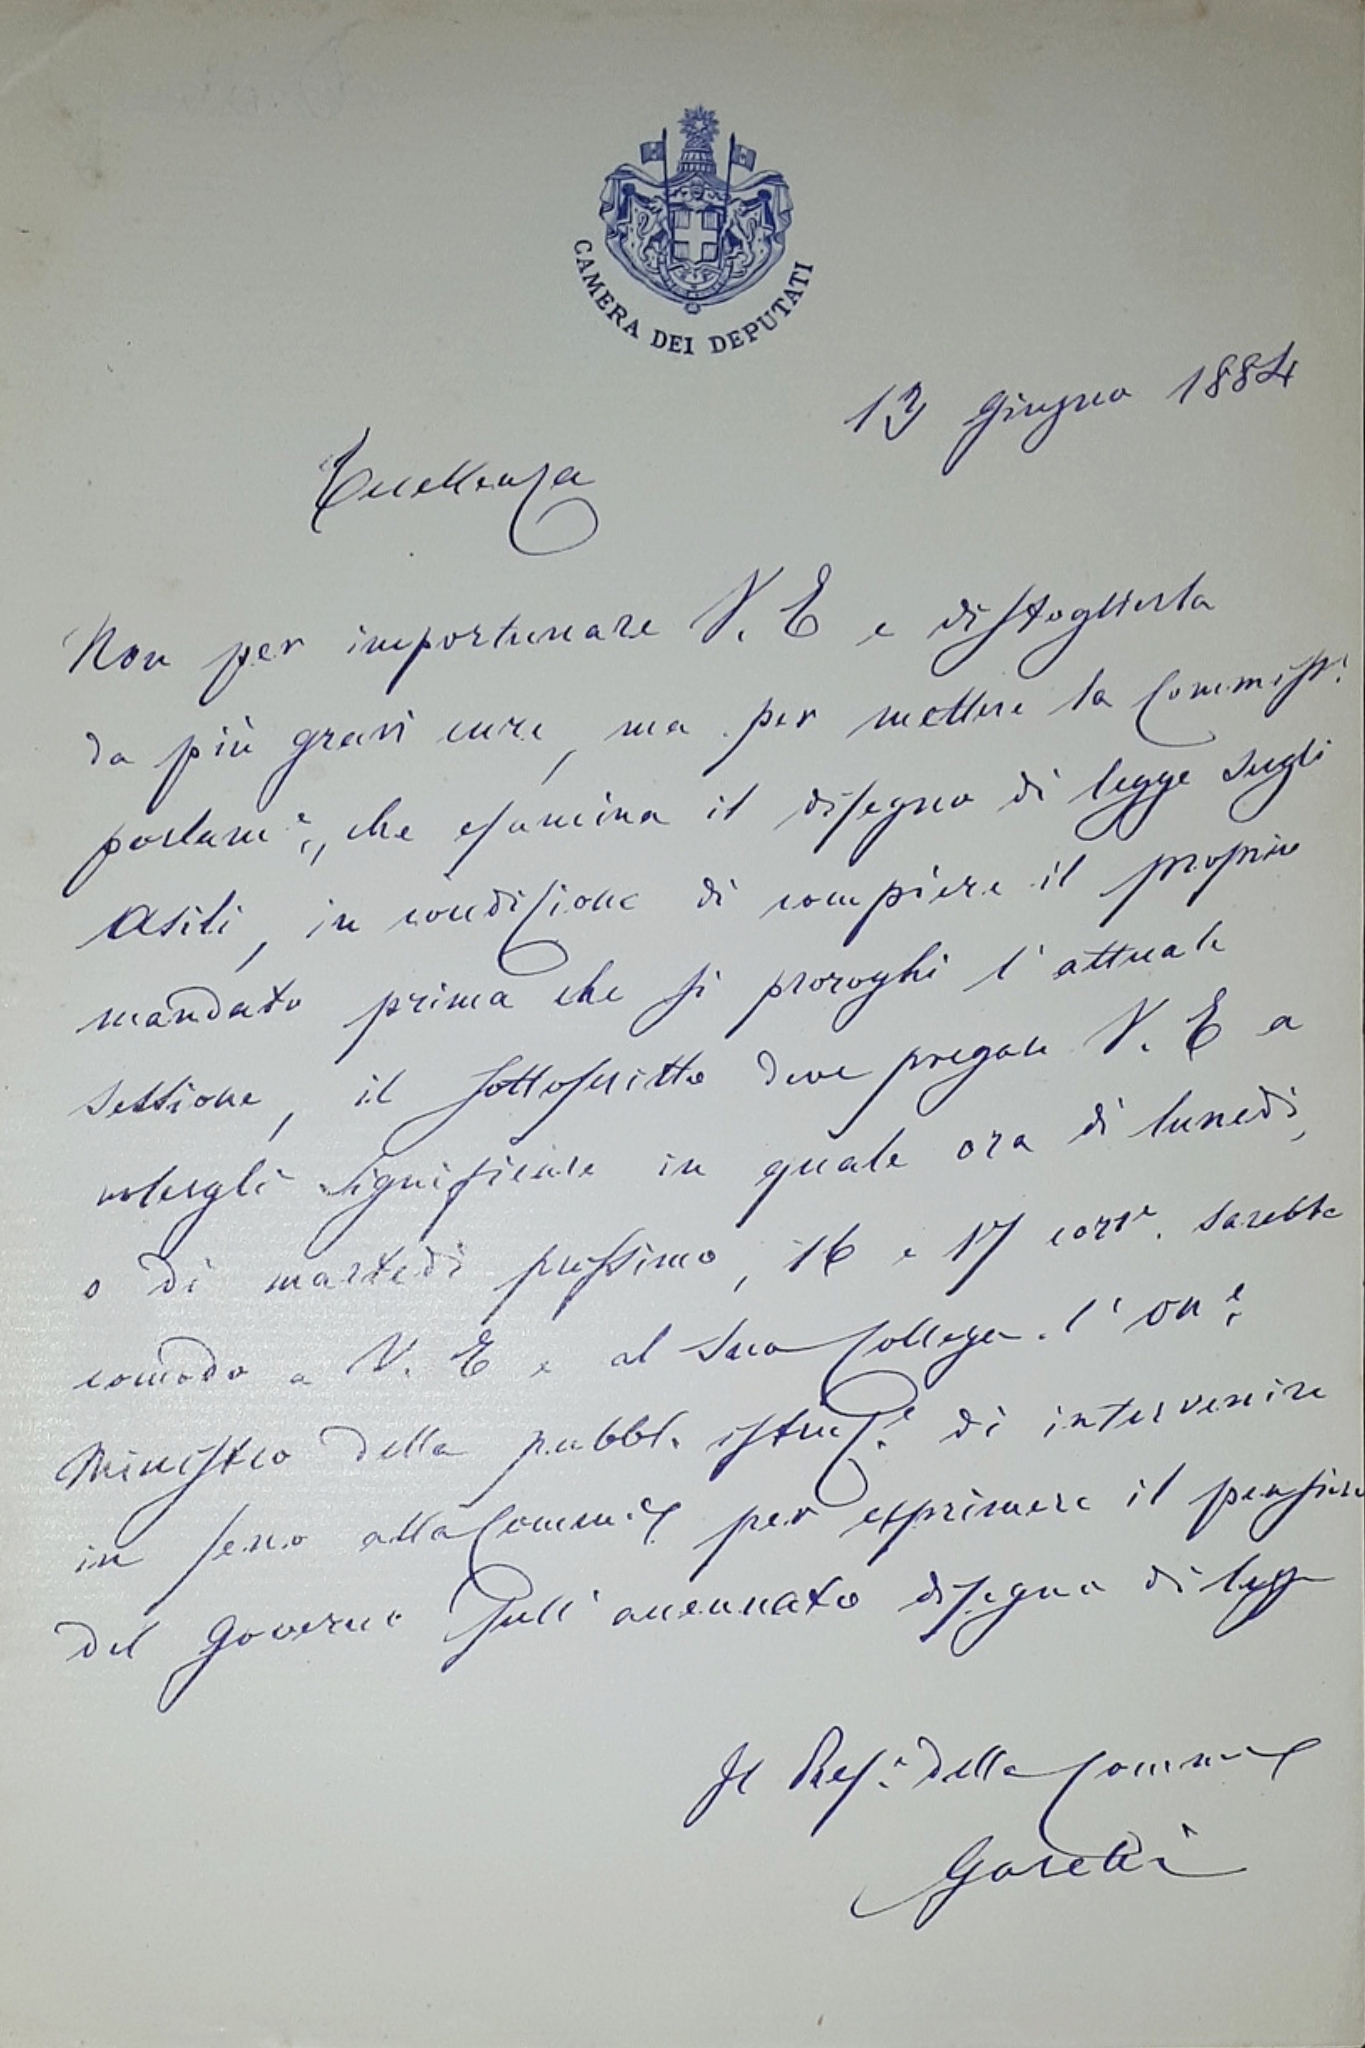 CAMERA DEI DEPUTATI
13 Giugno 1884
Eccellenza
Non per importunare V. E e distoglierla
da più gravi cure, ma per mettere la Commiss.i
parlam.e, che esamina il disegno di legge sugli
Asili, in condizione di compiere il proprio
mandato prima che si proroghi l'attuale
sessione, il sottoscritto deve pregare V. E a
volergli significare in quale ora di lunedì,
o di martedì prossimo, 16 e 17 corr.e sarebbe
comodo a V. E e al suo Collega l'on.e
Ministro della pubbl. istruz.e di intervenire
in seno alla Comm.e per esprimere il pensiero
del Governo sull'accennato disegno di legge
Il Pres.e della Comm.e